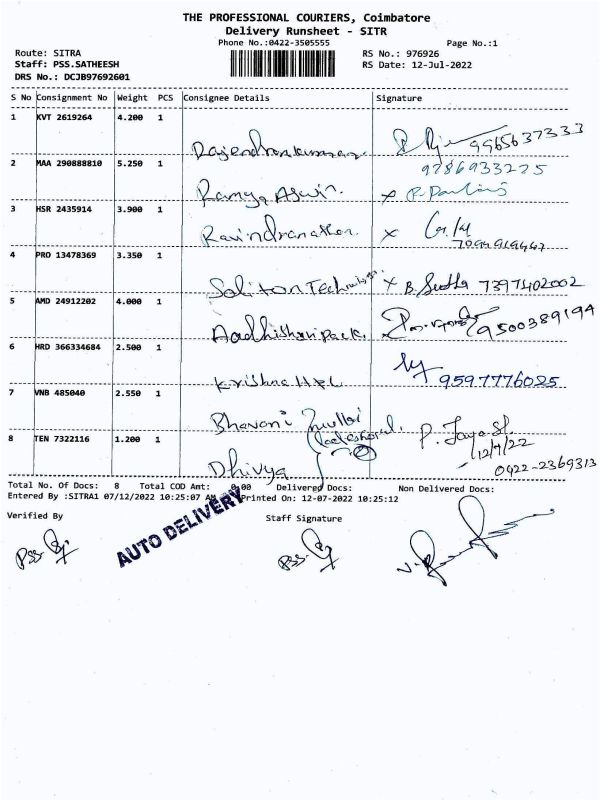 THE PROFESSIONAL COURIERS, Coimbatore
Delivery Runsheet - SITR
Phone No.:0422-3505555
Page No.:1
Route: SITRA
RS No.: 976926
Staff: PSS.SATHEESH
RS Date: 12-Jul-2022
DRS No.: DCJB97692601
S No Consignment No Weight PCS Consignee Details Signature
1 KVT 2619264 4.200 1
Rajendrankumar 9965637333
2 MAA 290888810 5.250 1 9786933275
Ramya Aswin. x
3 HSR 2435914 3.900 1
Ravindranathan. x
4 PRO 13478369 3.350 1
Soliton Technologies. x B. Sudha 7397402002
5 AMD 24912202 4.000 1
Aadhishanipack. 9500389194
6 HRD 366334684 2.500 1
Krishna HPL 9597776025
7 VNB 485040 2.550 1
Bhavani
8 TEN 7322116 1.200 1 12/7/22
Dhivya 0422-2369313
Total No. Of Docs: 8 Total COD Amt: 0.00 Delivered Docs: Non Delivered Docs:
Entered By :SITRA1 07/12/2022 10:25:07 AM Printed On: 12-07-2022 10:25:12
Verified By Staff Signature
AUTO DELIVERY
PSS. PSS.